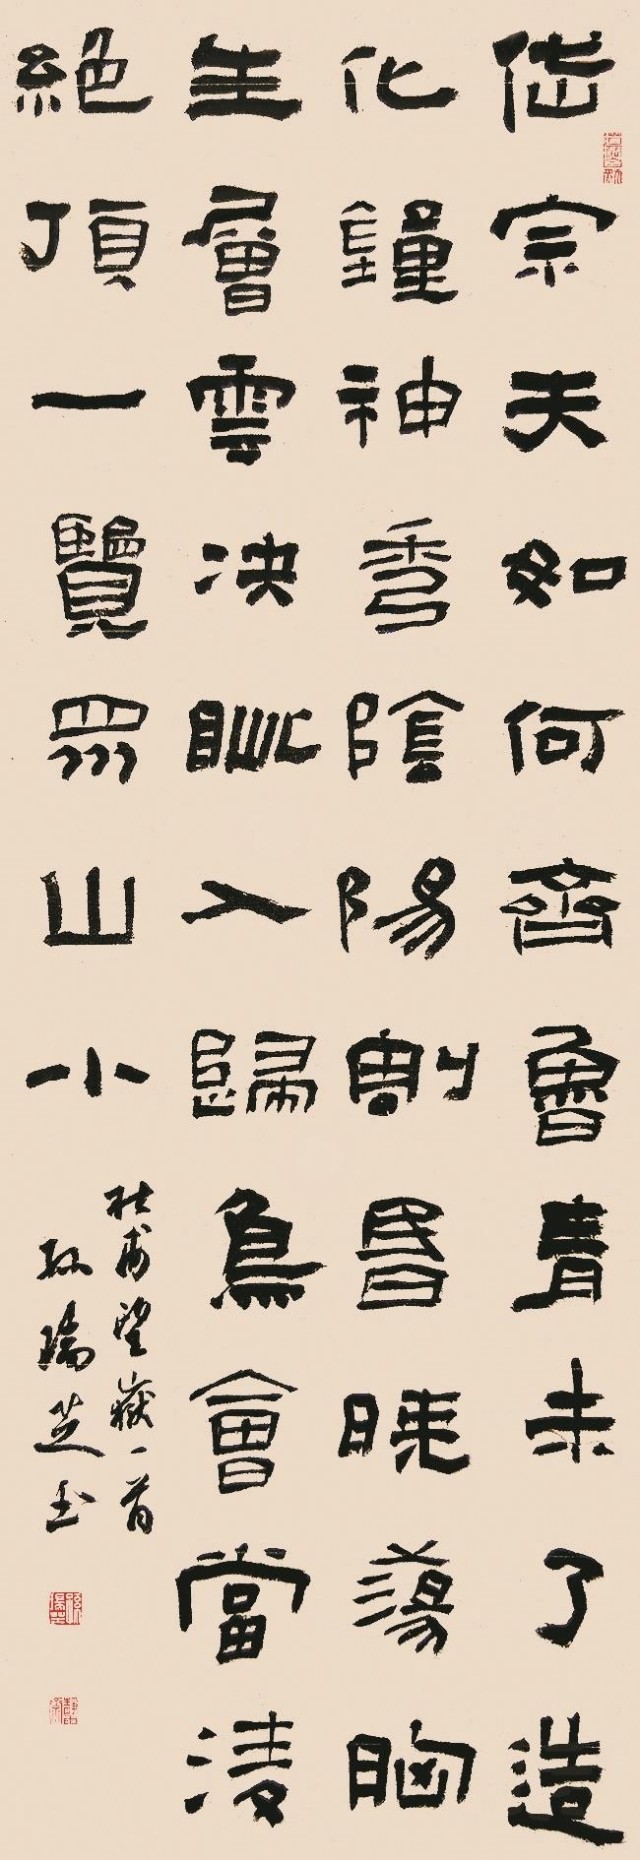 岱宗夫如何齊魯青未了造
化鍾神秀陰陽割昏曉蕩胸
生層雲決眥入歸鳥會當凌
絕頂一覽眾山小
杜甫望嶽一首
孫芝